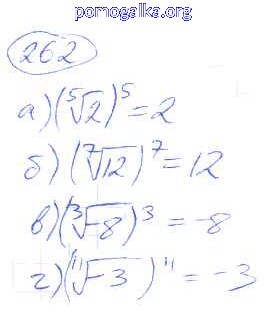 pomogalka.org
262
а) (⁵√2)⁵ = 2
б) (⁷√12)⁷ = 12
в) (³√-8)³ = -8
г) (¹¹√-3)¹¹ = -3